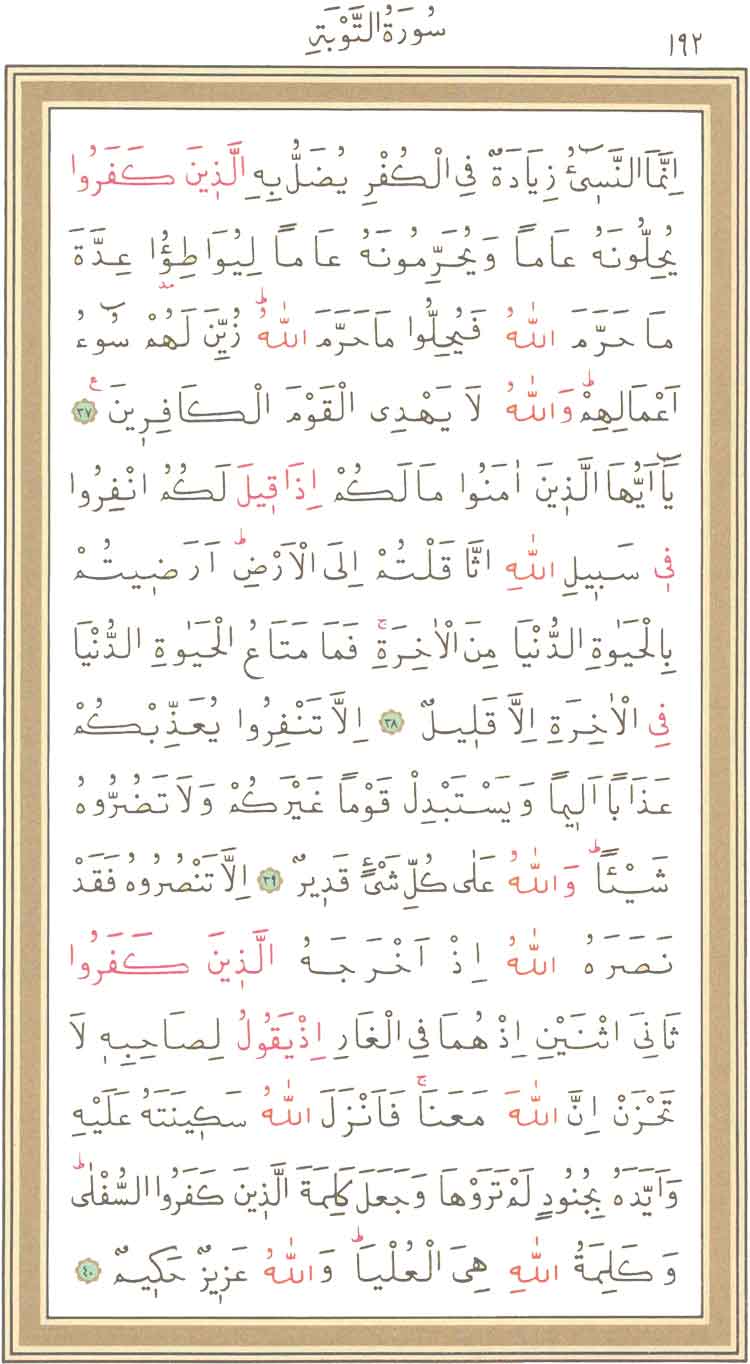 سُورَةُ التَّوْبَةِ
١٩٢
اِنَّمَا النَّسِٓيءُ زِيَادَةٌ فِي الْكُفْرِ يُضَلُّ بِهِ الَّذ۪ينَ كَفَرُوا
يُحِلُّونَهُ عَاماً وَيُحَرِّمُونَهُ عَاماً لِيُوَاطِؤُ۫ا عِدَّةَ
مَا حَرَّمَ اللّٰهُ فَيُحِلُّوا مَا حَرَّمَ اللّٰهُۜ زُيِّنَ لَهُمْ سُٓوءُ
اَعْمَالِهِمْۜ وَاللّٰهُ لَا يَهْدِي الْقَوْمَ الْكَافِر۪ينَ ع ٣٧
يَٓا اَيُّهَا الَّذ۪ينَ اٰمَنُوا مَا لَكُمْ اِذَا ق۪يلَ لَكُمُ انْفِرُوا
ف۪ي سَب۪يلِ اللّٰهِ اثَّاقَلْتُمْ اِلَى الْاَرْضِۜ اَرَض۪يتُمْ
بِالْحَيٰوةِ الدُّنْيَا مِنَ الْاٰخِرَةِۚ فَمَا مَتَاعُ الْحَيٰوةِ الدُّنْيَا
فِي الْاٰخِرَةِ اِلَّا قَل۪يلٌ ٣٨ اِلَّا تَنْفِرُوا يُعَذِّبْكُمْ
عَذَاباً اَل۪يماً وَيَسْتَبْدِلْ قَوْماً غَيْرَكُمْ وَلَا تَضُرُّوهُ
شَيْـٔاًۜ وَاللّٰهُ عَلٰى كُلِّ شَيْءٍ قَد۪يرٌ ٣٩ اِلَّا تَنْصُرُوهُ فَقَدْ
نَصَرَهُ اللّٰهُ اِذْ اَخْرَجَهُ الَّذ۪ينَ كَفَرُوا
ثَانِيَ اثْنَيْنِ اِذْ هُمَا فِي الْغَارِ اِذْ يَقُولُ لِصَاحِبِه۪ لَا
تَحْزَنْ اِنَّ اللّٰهَ مَعَنَاۚ فَاَنْزَلَ اللّٰهُ سَك۪ينَتَهُ عَلَيْهِ
وَاَيَّدَهُ بِجُنُودٍ لَمْ تَرَوْهَا وَجَعَلَ كَلِمَةَ الَّذ۪ينَ كَفَرُوا السُّفْلٰىۜ
وَكَلِمَةُ اللّٰهِ هِيَ الْعُلْيَاۜ وَاللّٰهُ عَز۪يزٌ حَك۪يمٌ ٤٠